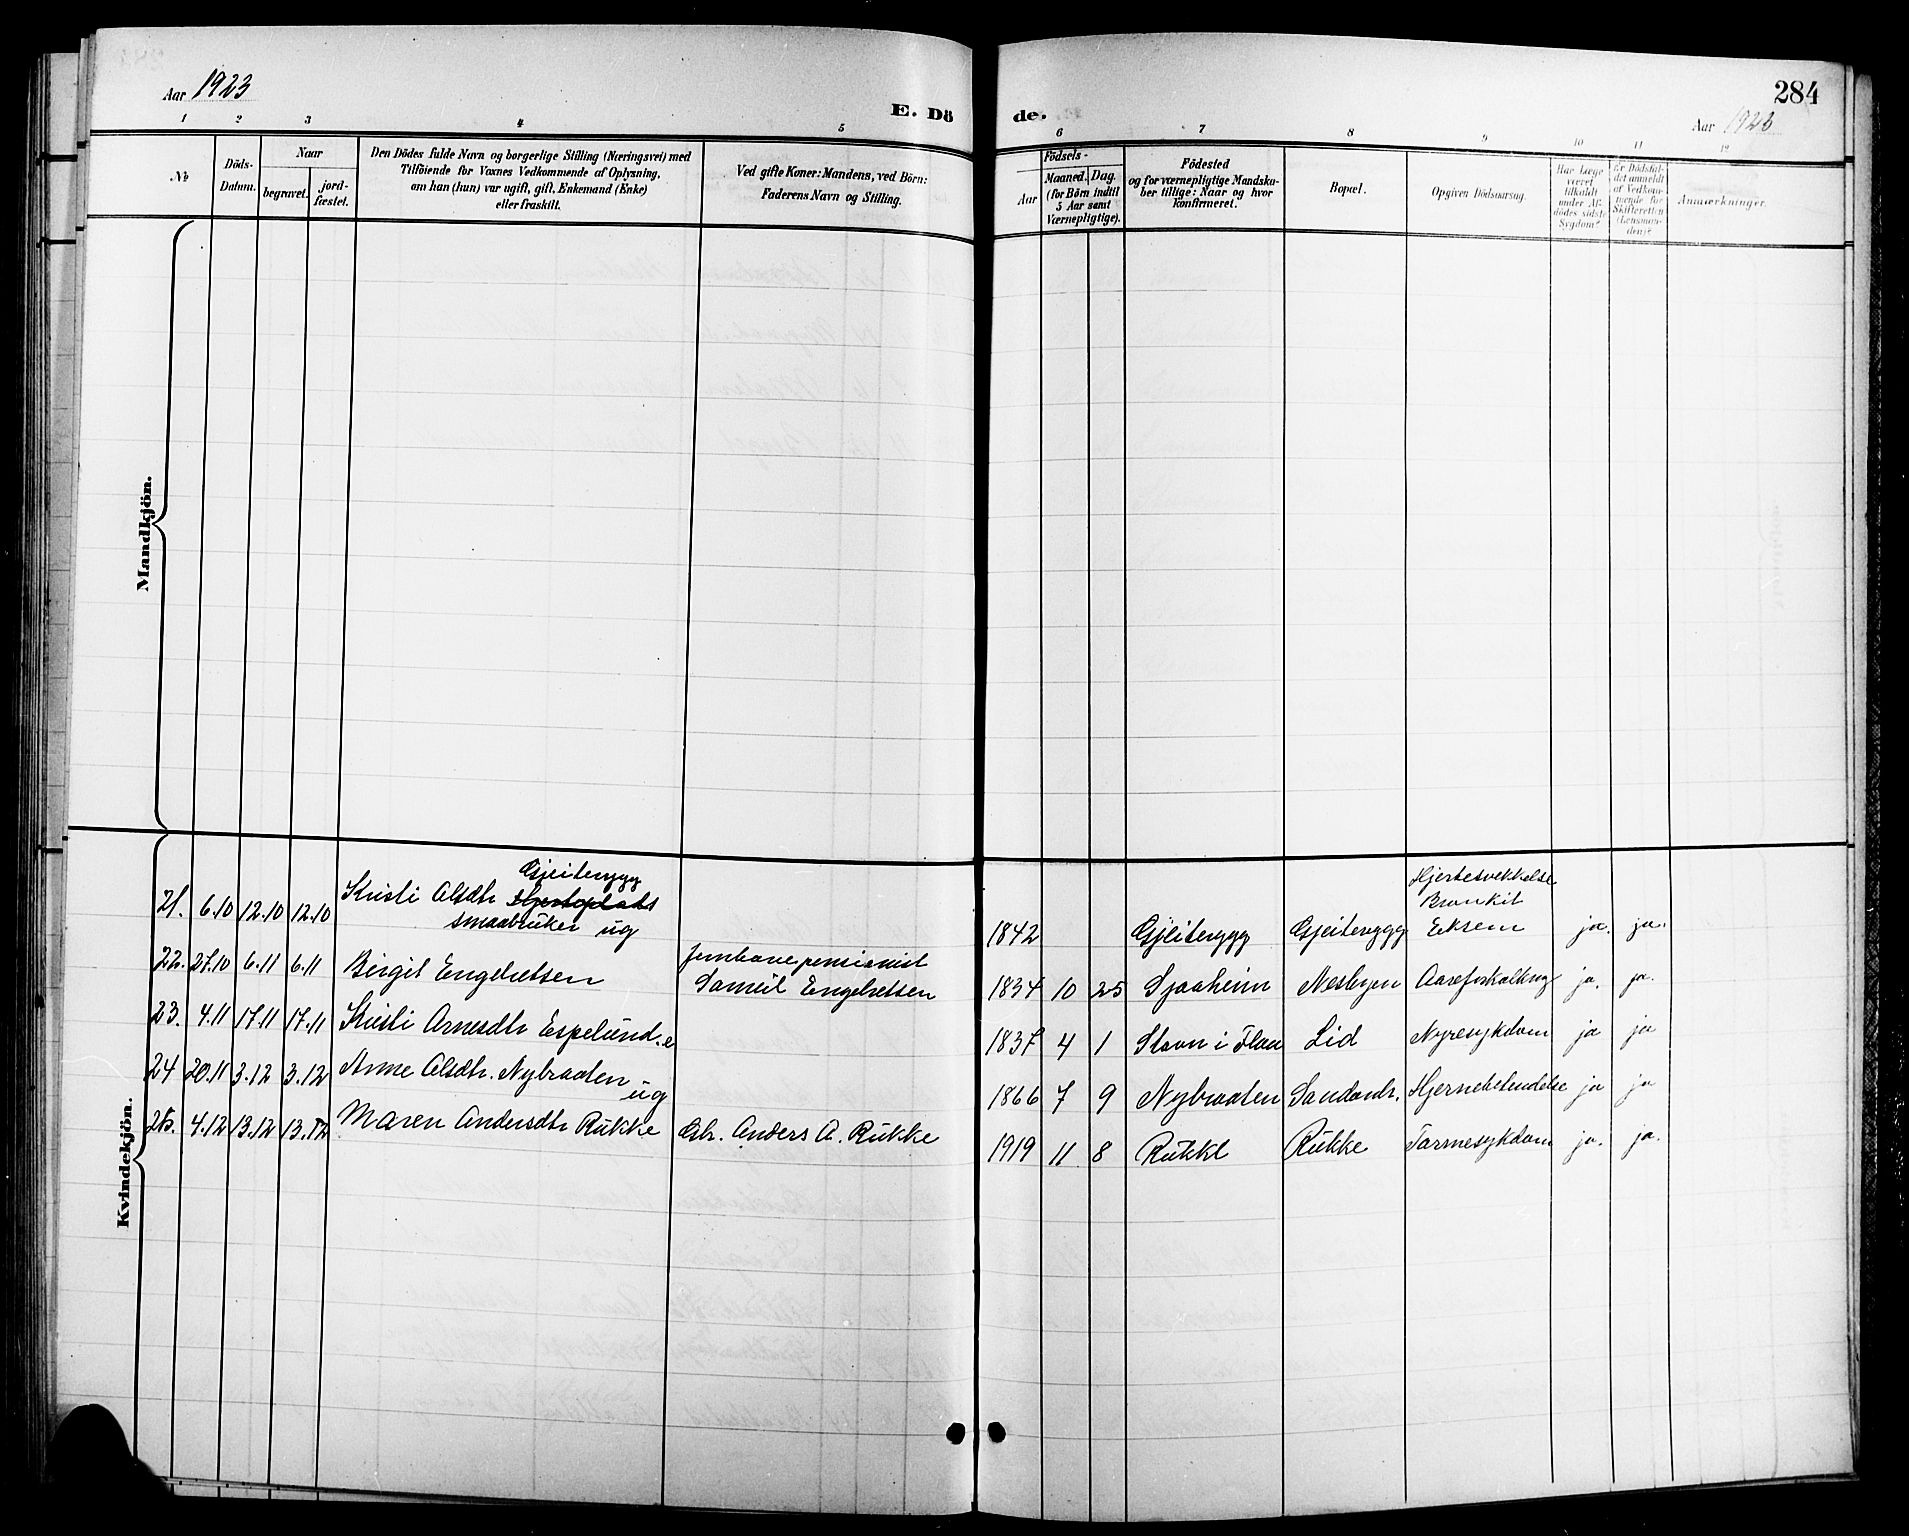 Aar 1923
E. Dö
de.
284
Aar 1923
1 2 3 4 5 6 7 8 9 10 11 12
№
Döds-
Datum.
Naar
begravet.
jord-
fæstet.
Den Dödes fulde Navn og borgerlige Stilling (Næringsvei) med
Tilföiende for Voxnes Vedkommende af Oplysning,
om han (hun) var ugift, gift, Enkemand (Enke)
eller fraskilt.
Ved gifte Koner: Mandens, ved Börn:
Faderens Navn og Stilling.
Födsels-
Aar
Maaned. Dag.
(for Börn indtil
5 Aar samt
Værnepligtige).
Födested
og for værnepligtige Mandska-
ber tillige: Naar og hvor
konfirmeret.
Bopæl.
Opgiven Dödsaarsag.
Har Læge
været
tilkaldt
under Af-
dödes sidste
Sygdom?
Er Dödsfal-
det anmeldt
af Vedkom-
mende for
Skifteretten
(Lensman-
den)?
Anmærkninger.
Mandkjön.
Kvindekjön.
21. 6.10 12.10 12.10 Kristi Olsdtr Gjeiterygg
smaabruker ug
1842 Gjeiterygg Gjeiterygg Hjertesvekkelse
Bronkit
Eksem ja. ja.
22. 27.10 6.11 6.11 Birgit Engebretsen Jernbanepensionist
Engebretsen 1834 10 25 Sjaaheim Nesbyen Aareforkalkng ja. ja.
23. 4.11 17.11 17.11 Kristi Arnesdtr Espelund. e 1837 4 1 Stavn i Flaa Lid Nyresykdom ja ja
24 20.11 3.12 3.12 Anne Olsdtr. Nybraaten
ug 1866 7 9 Nybraaten Hjernebetendelse ja ja
25. 4.12 13.12 13.12 Maren Andersdtr Rukke Gbr. Anders A. Rukke 1919 11 8 Rukke Rukke Tarmesykdom ja. ja.